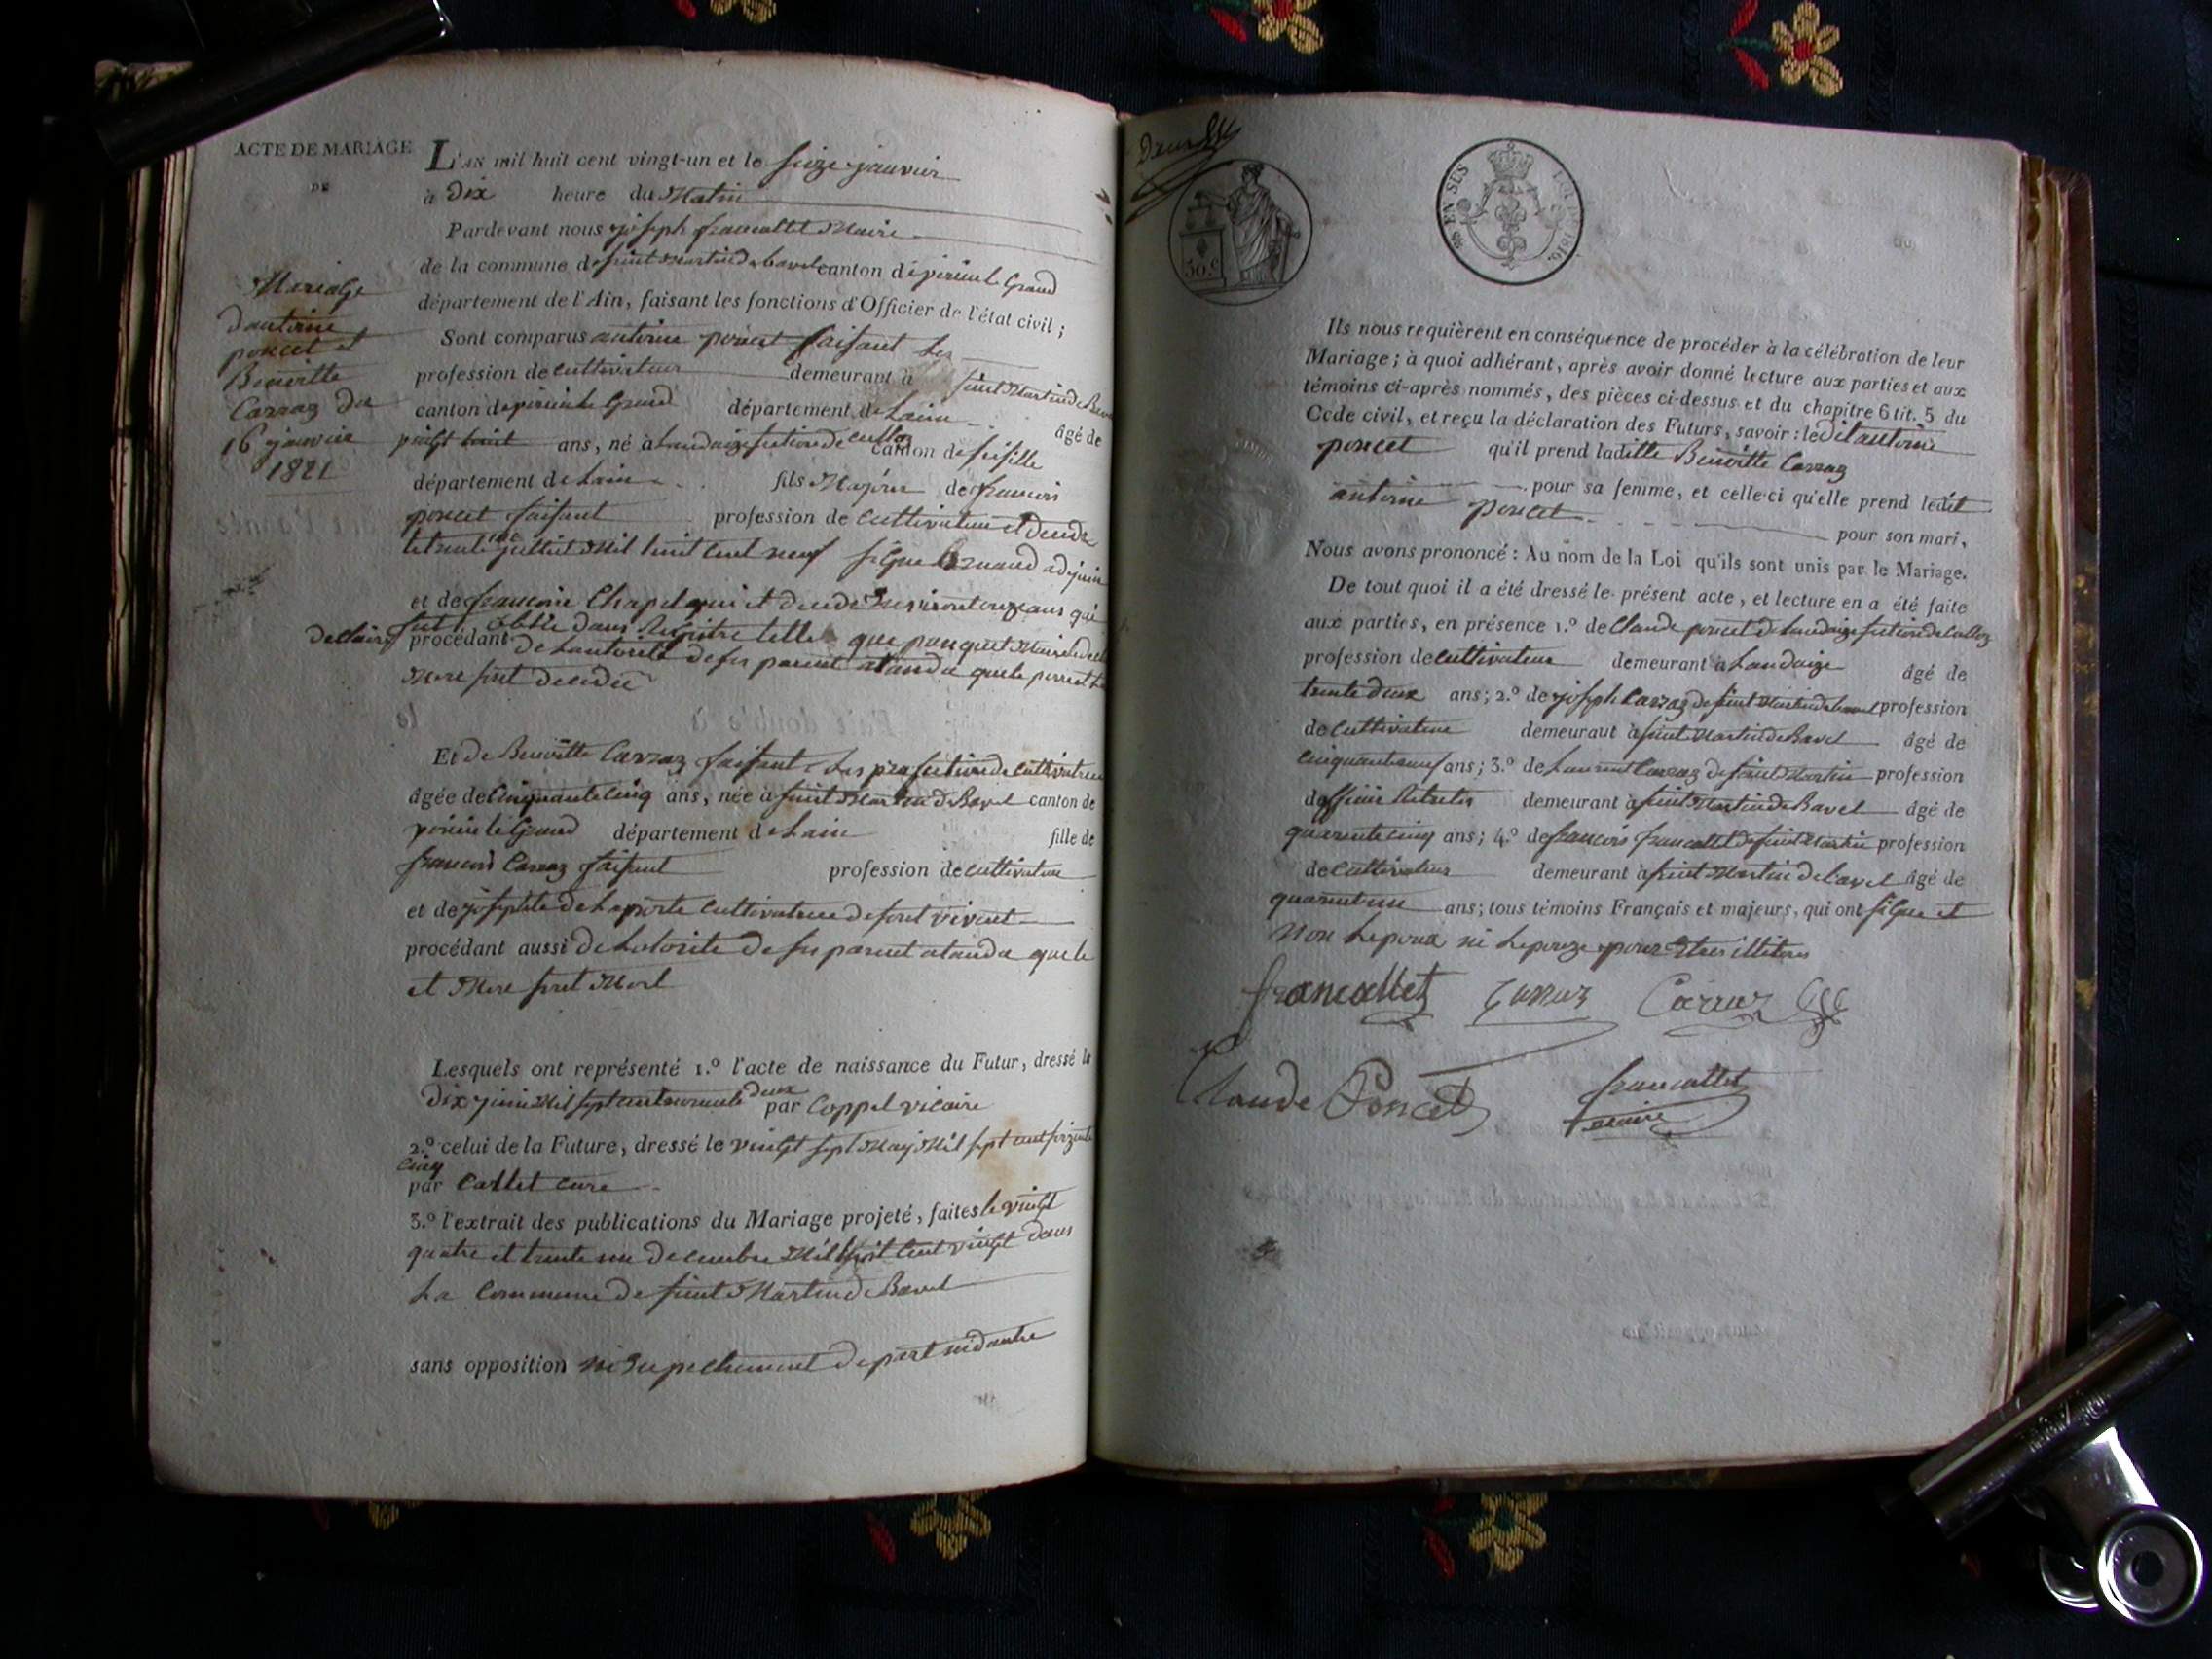 ACTE DE MARIAGE
DE
Mariage
d'antoine
poncet et
Benoitte
Carraz du
16 janvier
1821
L'AN mil huit cent vingt-un et le seize janvier
à dix heure du Matin
Pardevant nous joseph francallet Maire
de la commune de saint Martin de bavel canton de virieu le Grand
département de l'Ain, faisant les fonctions d'Officier de l'état civil ;
Sont comparus antoine poncet faisant
profession de cultivateur demeurant à saint Martin de Bavel
canton de virieu le Grand département de Lain âgé de
vingt huit ans, né à Landaize section de culloz canton de seisille
département de Lain fils Majeur de francois
poncet faisant profession de cultivateur et
juilliet Mil huit cent neuf signe adjoint
et de francoise Chapel qui
procédant de Lautorité de ses parent atandu que le
More sont decedée
Et de Benoitte Carraz faisant profession de cultivatrice
âgée de Cinquante Cinq ans, née à saint Martin de Bavel canton de
virieu le Grand département de Lain fille de
francois Carraz faisant profession de cultivateur
et de josephte de Laporte cultivatrice
procédant aussi de Lotorite de ses parent atandu que le
et More sont Mort
Lesquels ont représenté 1.° l'acte de naissance du Futur, dressé le
dix juin Mil sept cent nonante deux par Coppel vicaire
2.° celui de la Future, dressé le vingt sept May Mil sept cent soizante
cinq
par Carlet cure
3.° l'extrait des publications du Mariage projeté, faites le vingt
quatre et trente un decembre Mil huit Cent vingt dans
La Commune de saint Martin de Bavel
sans opposition ni depart ni dautre
30.C
EN SUS
1816.
Ils nous requièrent en conséquence de procéder à la célébration de leur
Mariage; à quoi adhérant, après avoir donné lecture aux parties et aux
témoins ci-après nommés, des pièces ci-dessus et du chapitre 6 tit. 5 du
Code civil, et reçu la déclaration des Futurs, savoir : le dit antoine
poncet qu'il prend ladille Benoitte Carraz
pour sa femme, et celle-ci qu'elle prend ledit
antoine poncet pour son mari,
Nous avons prononcé : Au nom de la Loi qu'ils sont unis par le Mariage.
De tout quoi il a été dressé le présent acte, et lecture en a été faite
aux parties, en présence 1.° de Claude poncet de Landaize section de Culloz
profession de cultivateur demeurant à Landaize âgé de
trente deux ans; 2.° de joseph Carraz de saint Martin de bavel profession
de cultivateur demeurant à saint Martin de Bavel âgé de
cinquante neuf ans; 3.° de Laurent Carraz de saint Martin profession
dofficie Retretes demeurant à saint Martin de Bavel âgé de
quarente cinq ans; 4.° de francois francallet de saint Martin profession
de cultivateur demeurant à saint Martin de bavel âgé de
quarent un ans; tous témoins Français et majeurs, qui ont signe et
Non Lepoux ni Lepouze pour Etres illitéres
francallet Carraz Carraz
Claude Poncet francallet
maire